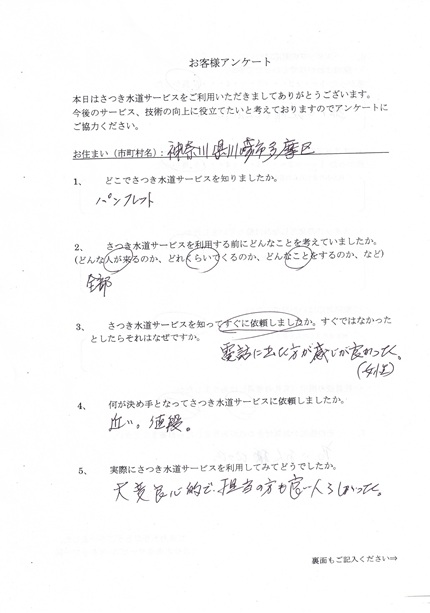 お客様アンケート
本日はさつき水道サービスをご利用いただきましてありがとうございます。
今後のサービス、技術の向上に役立てたいと考えておりますのでアンケートに
ご協力ください。
お住まい（市町村名）：神奈川県川崎市多摩区
1、 どこでさつき水道サービスを知りましたか。
パンフレット
2、 さつき水道サービスを利用する前にどんなことを考えていましたか。
(どんな人が来るのか、どれくらいでくるのか、どんなことをするのか、など)
全部
3、 さつき水道サービスを知ってすぐに依頼しましたか。すぐではなかった
としたらそれはなぜですか。
電話に出た方が感じが良かった。
(女性)
4、 何が決め手となってさつき水道サービスに依頼しましたか。
近い。値段。
5、 実際にさつき水道サービスを利用してみてどうでしたか。
大変良心的で、担当の方も良い人らしかった。
裏面もご記入ください⇒